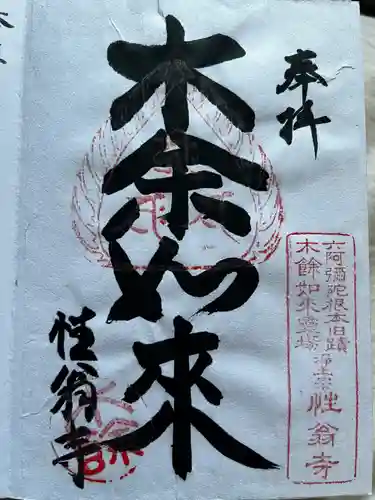 奉拝
六阿彌陀根本旧蹟
木餘如来霊場 浄土宗 性翁寺
木余如来
性翁寺